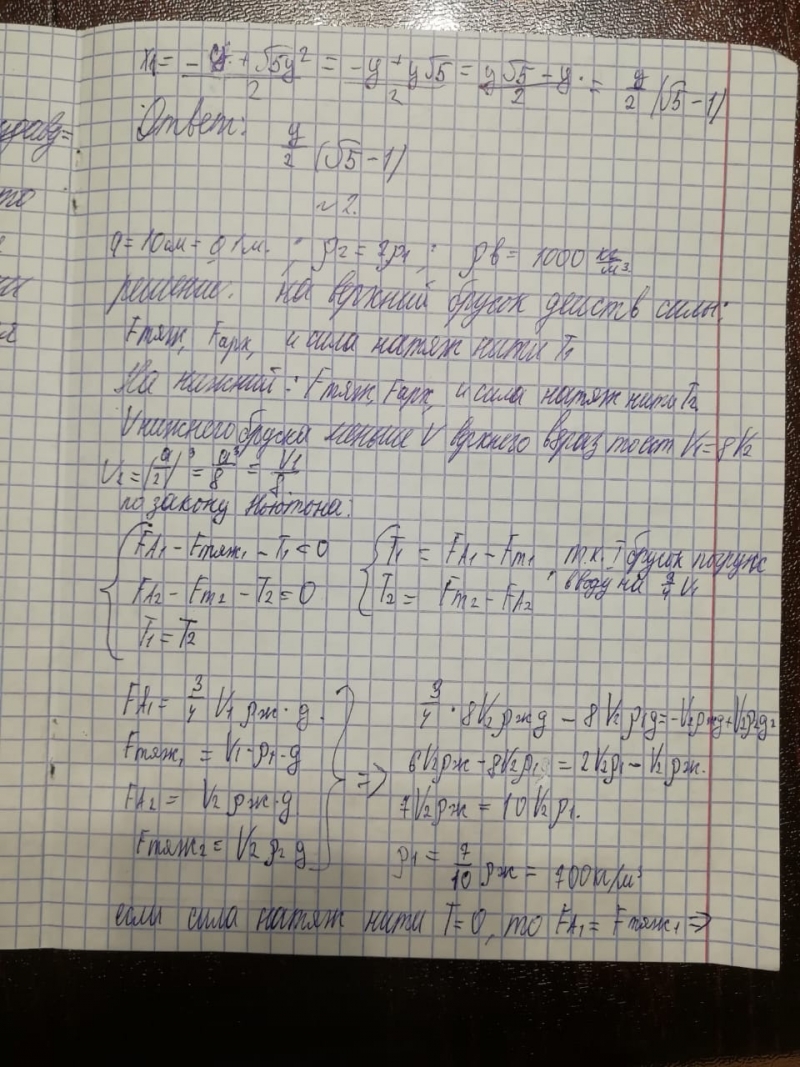 x₁ = (-y + √5y²)/2 = (-y + y√5)/2 = (y√5 - y)/2 = y/2 (√5 - 1)
Ответ:
y/2 (√5 - 1)
№2.
a = 10см = 0,1м. ; ρ₂ = 2ρ₁ ; ρв = 1000 кг/м³.
решение. на верхний брусок действ силы:
Fтяж, Fарх, и сила натяж нити T₁
На нижний: Fтяж, Fарх, и сила натяж нити T₂
V нижнего бруска меньше V верхнего в 8 раз то ест V₁ = 8V₂
V₂ = (a/2)³ = a³/8 = V₁/8
по закону Ньютона:
FA₁ - Fтяж₁ - T₁ = 0
FA₂ - Fт₂ - T₂ = 0
T₁ = T₂
T₁ = FA₁ - Fт₁
T₂ = Fт₂ - FA₂
т.к. I брусок погружс
в воду на 3/4 V₁
FA₁ = 3/4 V₁ ρж · g.
Fтяж₁ = V₁ · ρ₁ · g
FA₂ = V₂ ρж · g
Fтяж₂ = V₂ ρ₂ g
=>
3/4 · 8V₂ρжg - 8V₂ρ₁g = -V₂ρжg + V₂ρ₂g
6V₂ρж - 8V₂ρ₁ = 2V₂ρ₁ - V₂ρж.
7V₂ρж = 10V₂ρ₁.
ρ₁ = 7/10 ρж = 700кг/м³
если сила натяж нити T = 0, то FA₁ = Fтяж₁ =>